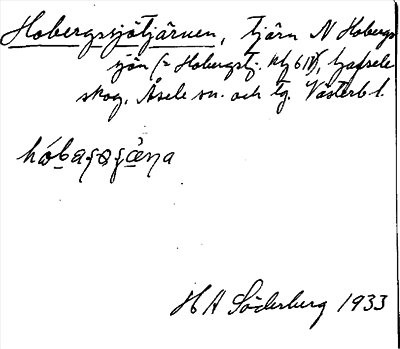 Hobergssjötjärnen, tjärn N Hobergs
sjön (= Hobergstj. Kbl 61 V), Gafsele
skog, Åsele sn. och tg. Västerb. l.
H A Söderberg 1933